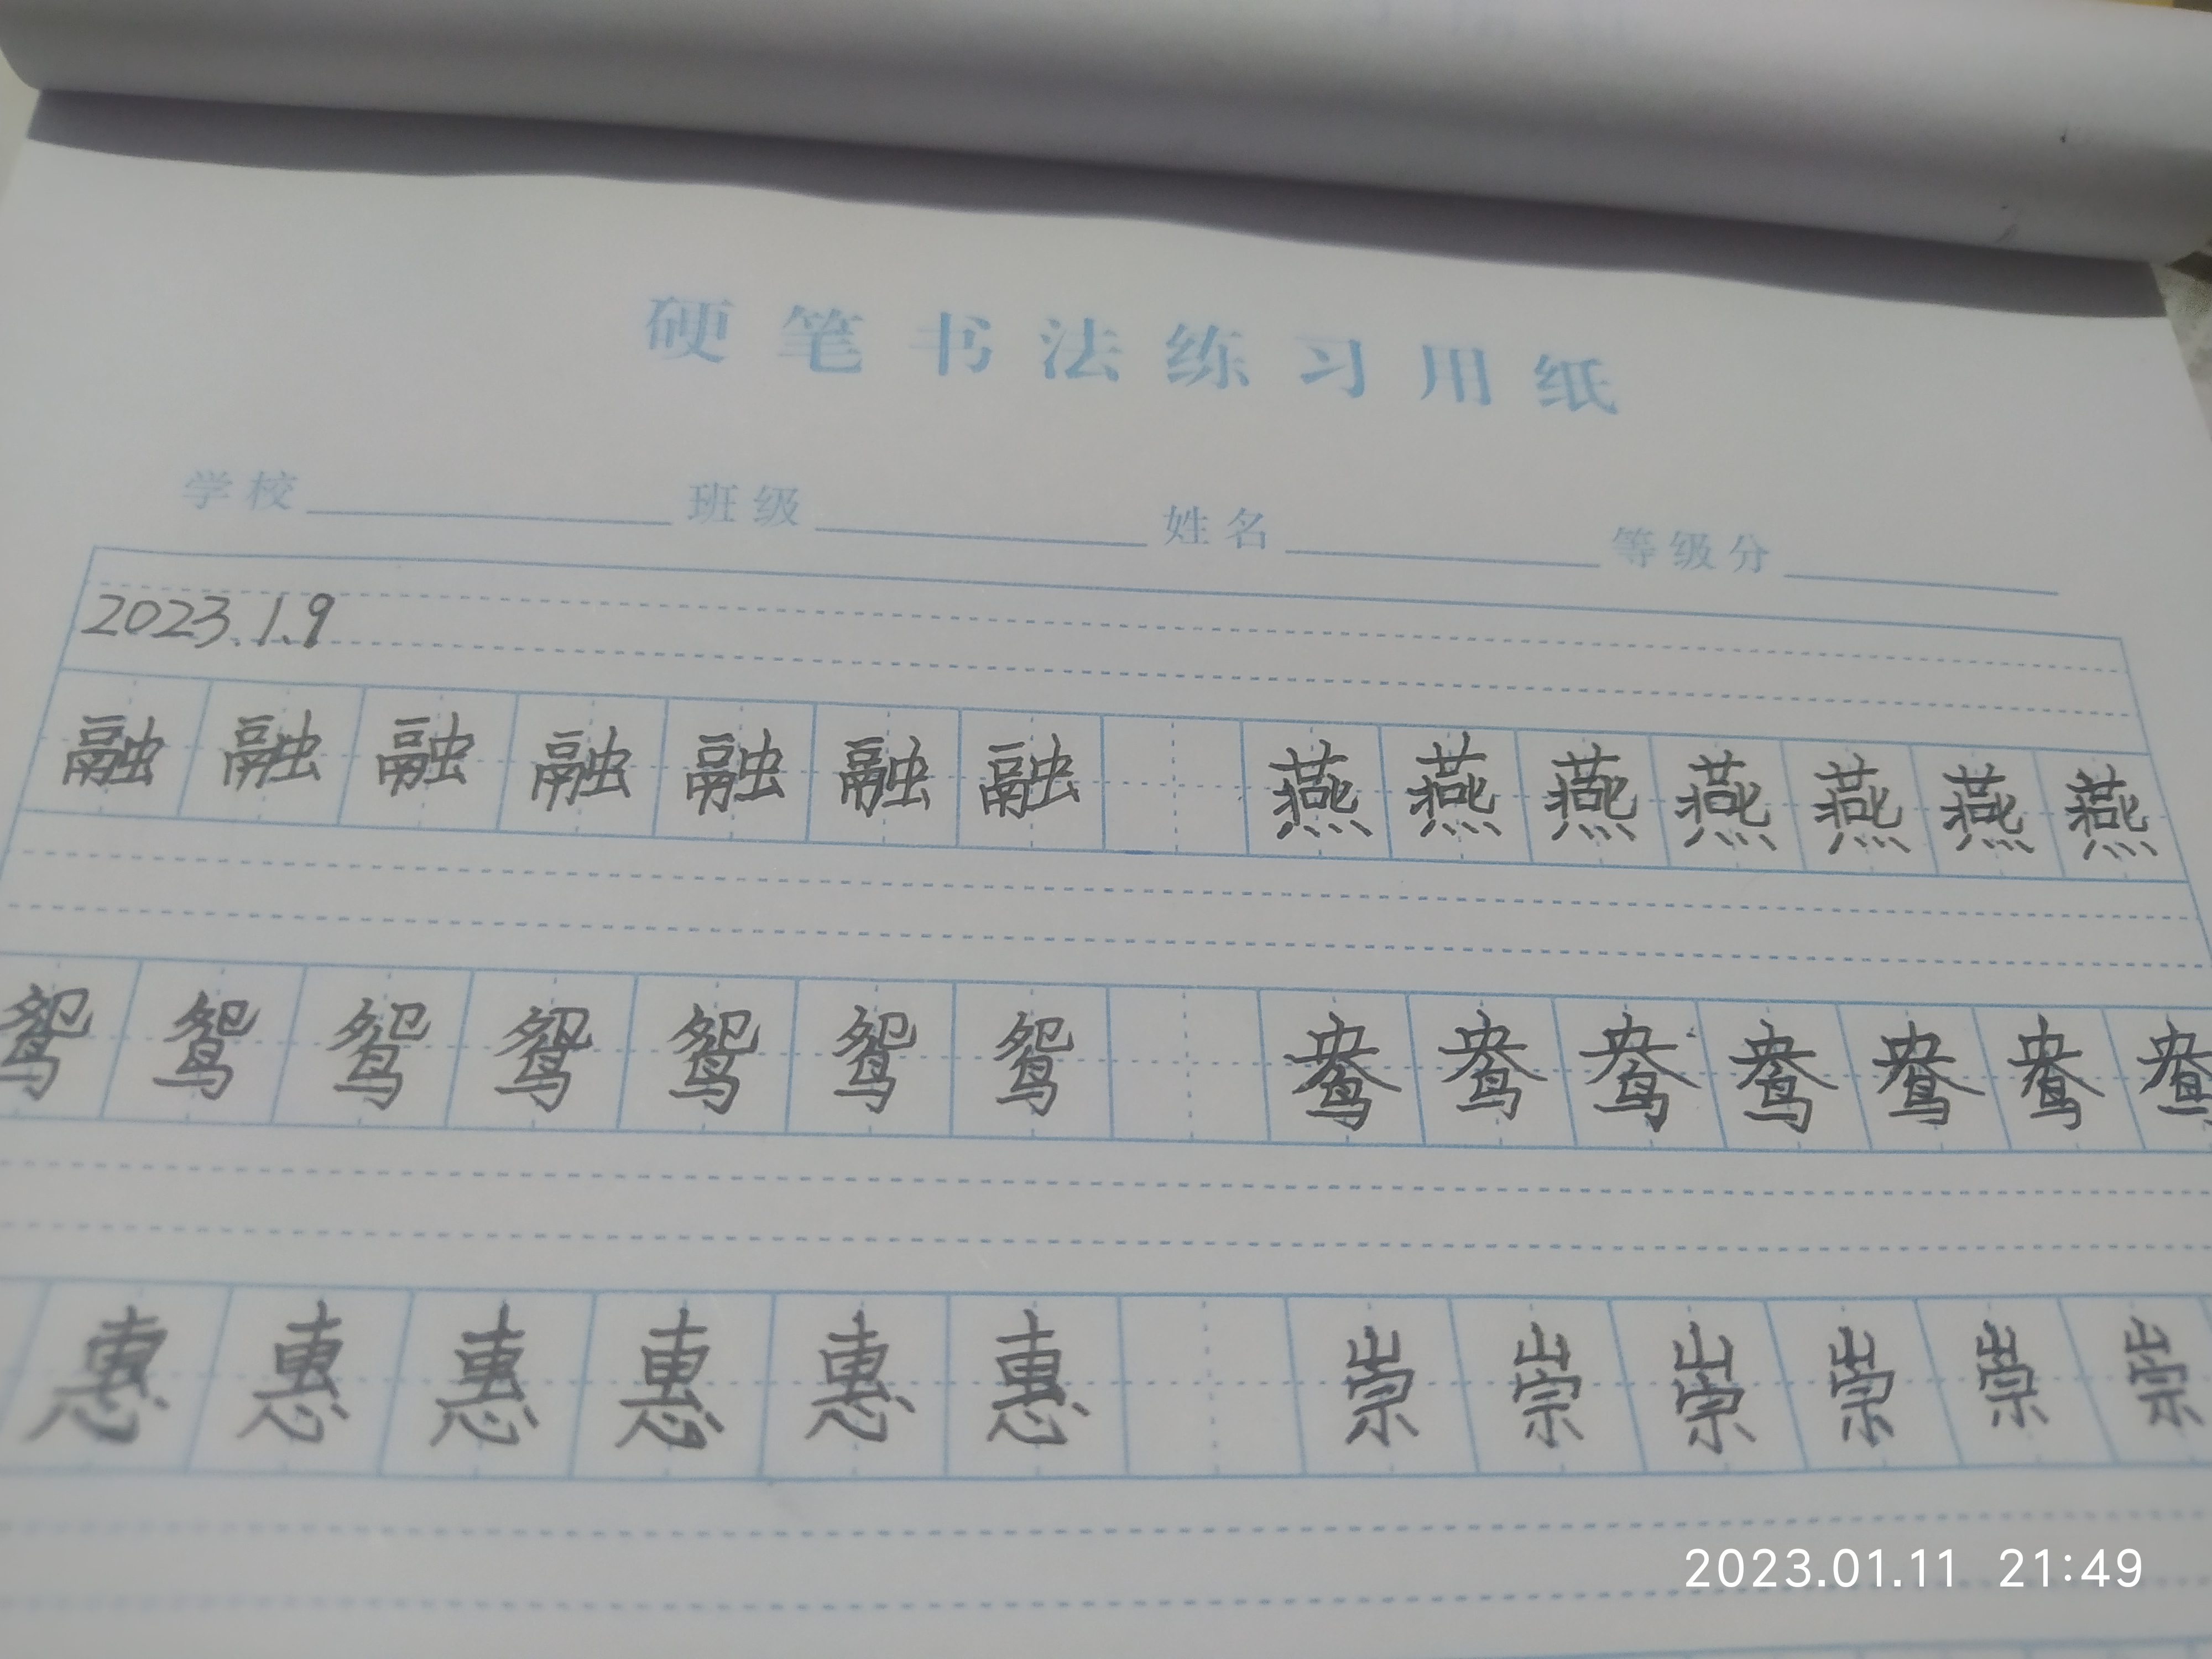 硬笔书法练习用纸
学校 班级 姓名 等级分
2023.1.9
融融融融融融融 燕燕燕燕燕燕燕
鸳鸳鸳鸳鸳鸳鸳 鸯鸯鸯鸯鸯鸯鸯
惠惠惠惠惠惠 崇崇崇崇崇崇
2023.01.11 21:49